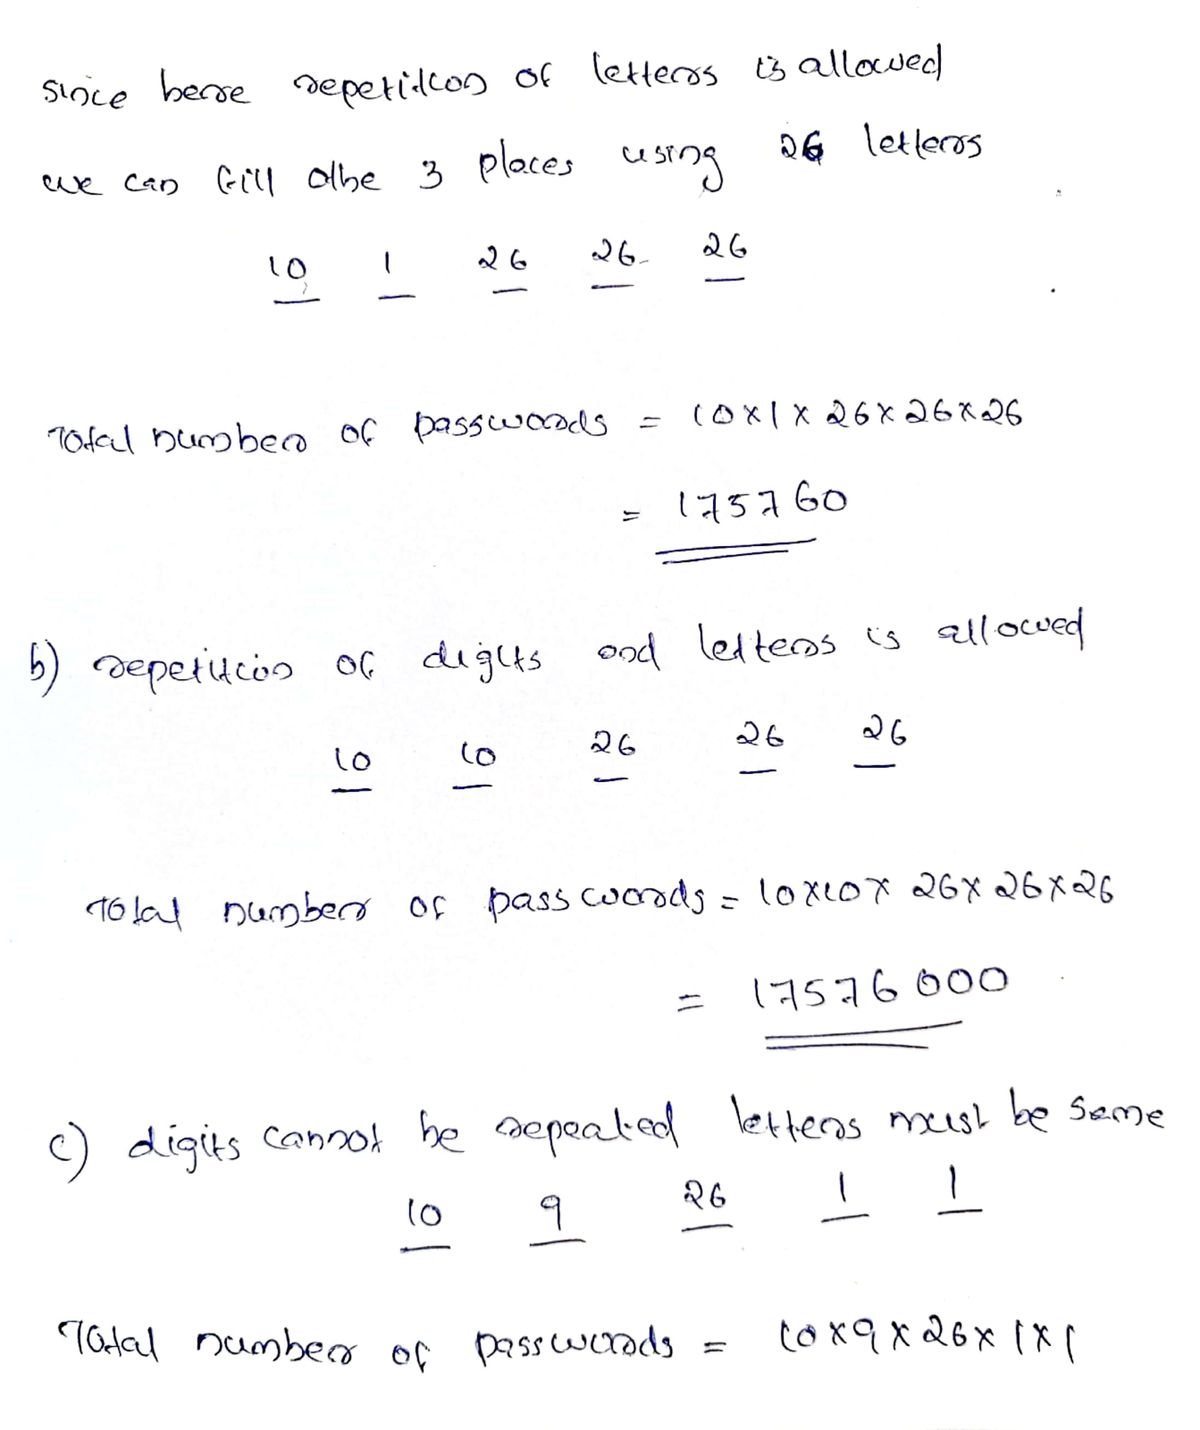 since here repetition of letters is allowed
we can fill the 3 places using 26 letters
10 1 26 26 26
Total number of passwords = 10x1x 26x26x26
= 175760
b) repetition of digits and letters is allowed
10 10 26 26 26
Total number of passwords = 10x10x 26x26x26
= 17576000
c) digits cannot be repeated letters must be same
10 9 26 1 1
Total number of passwords = 10x9x26x1x1